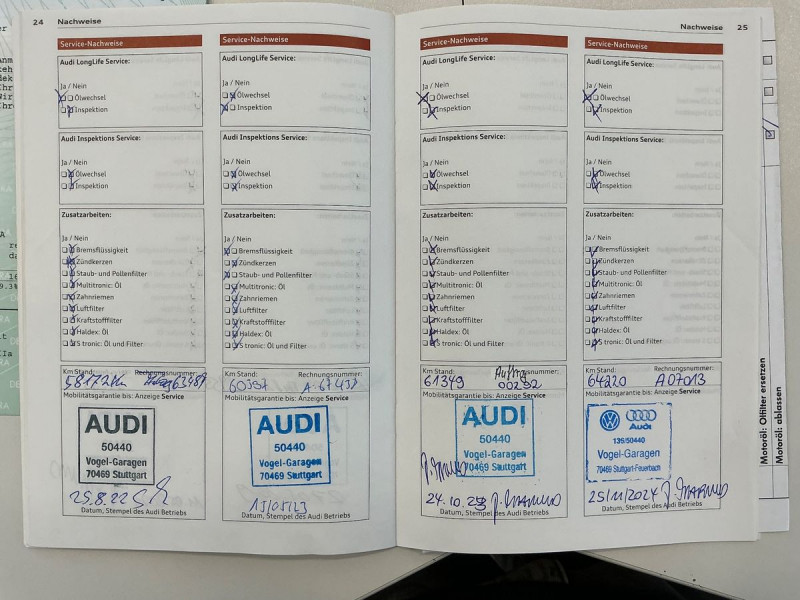 24 Nachweise
Service-Nachweise
Audi LongLife Service:
Ja / Nein
Ölwechsel
Inspektion
Audi Inspektions Service:
Ja / Nein
Ölwechsel
Inspektion
Zusatzarbeiten:
Ja / Nein
Bremsflüssigkeit
Zündkerzen
Staub- und Pollenfilter
Multitronic: Öl
Zahnriemen
Luftfilter
Kraftstofffilter
Haldex: Öl
S tronic: Öl und Filter
Km Stand: Rechnungsnummer:
58172 Km
Mobilitätsgarantie bis: Anzeige Service
AUDI
50440
Vogel-Garagen
70469 Stuttgart
25.8.22
Datum, Stempel des Audi Betriebs
Service-Nachweise
Audi LongLife Service:
Ja / Nein
Ölwechsel
Inspektion
Audi Inspektions Service:
Ja / Nein
Ölwechsel
Inspektion
Zusatzarbeiten:
Ja / Nein
Bremsflüssigkeit
Zündkerzen
Staub- und Pollenfilter
Multitronic: Öl
Zahnriemen
Luftfilter
Kraftstofffilter
Haldex: Öl
S tronic: Öl und Filter
Km Stand: Rechnungsnummer:
60397 A-67438
Mobilitätsgarantie bis: Anzeige Service
AUDI
50440
Vogel-Garagen
70469 Stuttgart
15/05/23
Datum, Stempel des Audi Betriebs
Nachweise 25
Service-Nachweise
Audi LongLife Service:
Ja / Nein
Ölwechsel
Inspektion
Audi Inspektions Service:
Ja / Nein
Ölwechsel
Inspektion
Zusatzarbeiten:
Ja / Nein
Bremsflüssigkeit
Zündkerzen
Staub- und Pollenfilter
Multitronic: Öl
Zahnriemen
Luftfilter
Kraftstofffilter
Haldex: Öl
S tronic: Öl und Filter
Km Stand: Auftragsnummer:
61349 00292
Mobilitätsgarantie bis: Anzeige Service
AUDI
50440
Vogel-Garagen
70469 Stuttgart
24.10.23
Datum, Stempel des Audi Betriebs
Service-Nachweise
Audi LongLife Service:
Ja / Nein
Ölwechsel
Inspektion
Audi Inspektions Service:
Ja / Nein
Ölwechsel
Inspektion
Zusatzarbeiten:
Ja / Nein
Bremsflüssigkeit
Zündkerzen
Staub- und Pollenfilter
Multitronic: Öl
Zahnriemen
Luftfilter
Kraftstofffilter
Haldex: Öl
S tronic: Öl und Filter
Km Stand: Rechnungsnummer:
64220 A07013
Mobilitätsgarantie bis: Anzeige Service
Audi
139/50440
Vogel-Garagen
70469 Stuttgart-Feuerbach
25/11/2024
Datum, Stempel des Audi Betriebs
Motoröl: Ölfilter ersetzen
Motoröl: ablassen